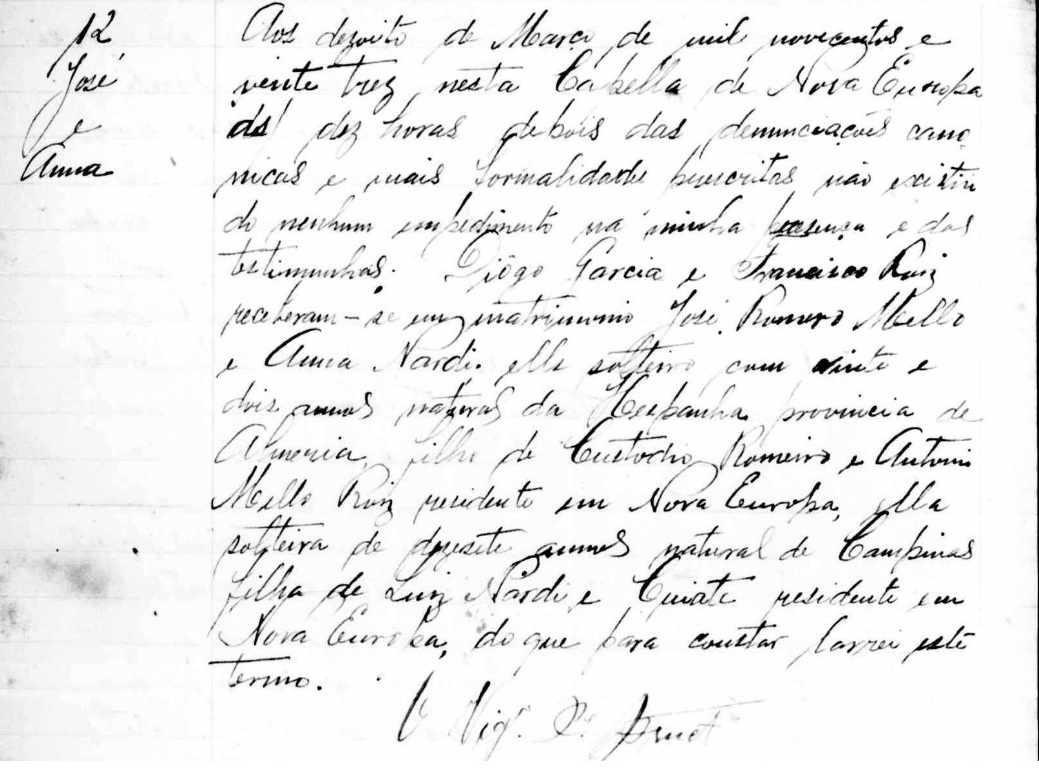 12
José
e
Anna
Aos dezoito de Março de mil novecentos e
vinte trez nesta Capella de Nova Europa
ds dez horas debois das denunciações cano
nicas e mais formalidade prescritas não existin
do nenhum empedimento na minha presença e das
testimunhas. Diôgo Garcia e Francisco Ruiz
receberam-se em matrimonio José Romero Mello
e Anna Nardi. elle solteiro com vinte e
dois annos natural da Hespanha provincia de
Almeria, filho de Custodio Romeiro e Antoni
Mello Ruiz residente em Nova Europa, ella
solteira de dezesete annos natural de Campinas
filha de Luiz Nardi e residente em
Nova Europa, do que para constar larrei este
termo.
O Vigº. Pe